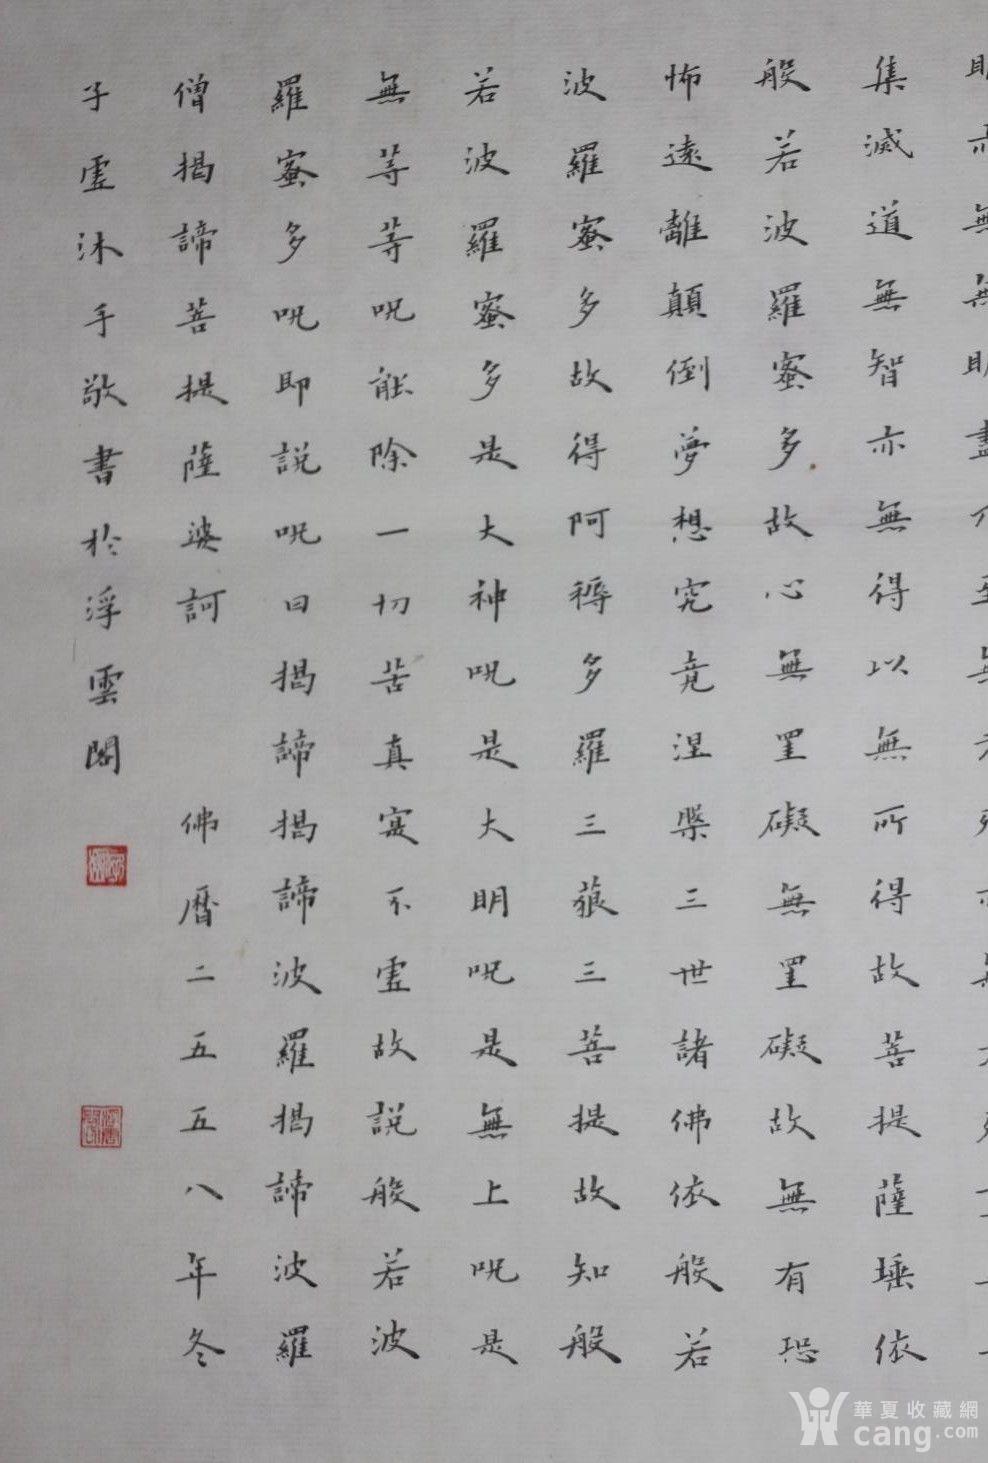 集滅道無智亦無得以無所得故菩提薩埵依
般若波羅蜜多故心無罣礙無罣礙故無有恐
怖遠離顛倒夢想究竟涅槃三世諸佛依般若
波羅蜜多故得阿耨多羅三藐三菩提故知般
若波羅蜜多是大神呪是大明呪是無上呪是
無等等呪能除一切苦真寔不虛故說般若波
羅蜜多呪即說呪曰揭諦揭諦波羅揭諦波羅
僧揭諦菩提薩婆訶 佛曆二五五八年冬
子虛沐手敬書於浮雲閣
華夏收藏網
cang.com